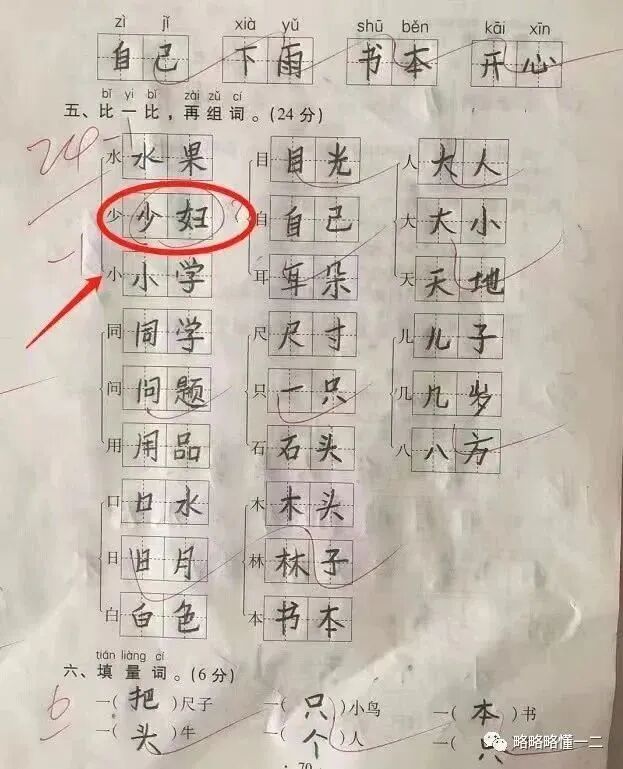 zì jǐ xià yǔ shū běn kāi xīn
自己 下雨 书本 开心
bǐ yi bǐ zài zǔ cí
五、比一比，再组词。(24分)
24
水 水果 目 目光 人 大人
少 少妇 自 自己 大 大小
-1
小 小学 耳 耳朵 天 天地
同 同学 尺 尺寸 儿 儿子
问 问题 只 一只 几 几岁
用 用品 石 石头 八 八方
口 口水 木 木头
日 日月 林 林子
白 白色 本 书本
tián liàng cí
六、填量词。(6分)
6
一(把)尺子 一(只)小鸟 一(本)书
一(头)牛 一(个)人 只
略略略懂一二
· 70